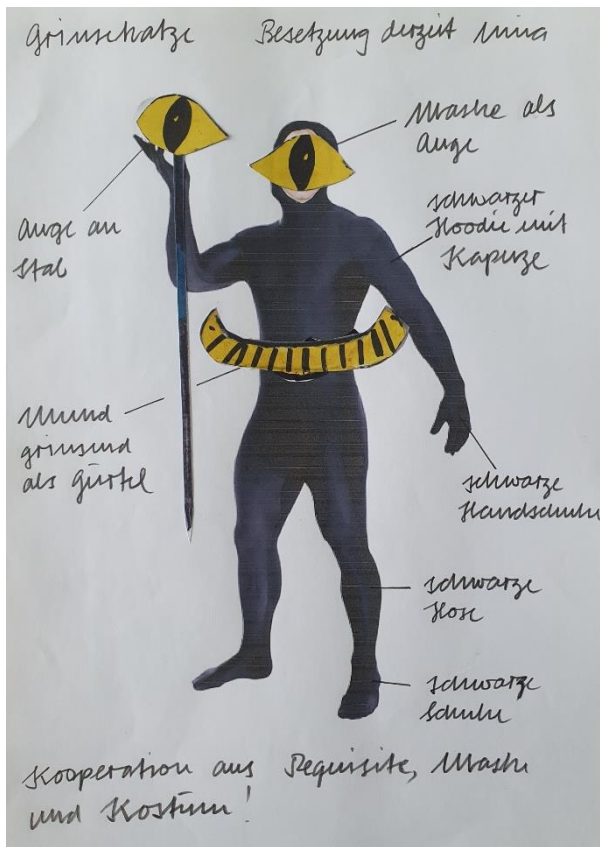 Grinsekatze Besetzung derzeit Mina
Maske als
Auge
schwarzer
Hoodie mit
Kapuze
Auge an
Stab
Mund
grinsend
als Gürtel
schwarze
Handschuhe
schwarze
Hose
schwarze
Schuhe
Kooperation aus Requisite, Maske
und Kostüm!